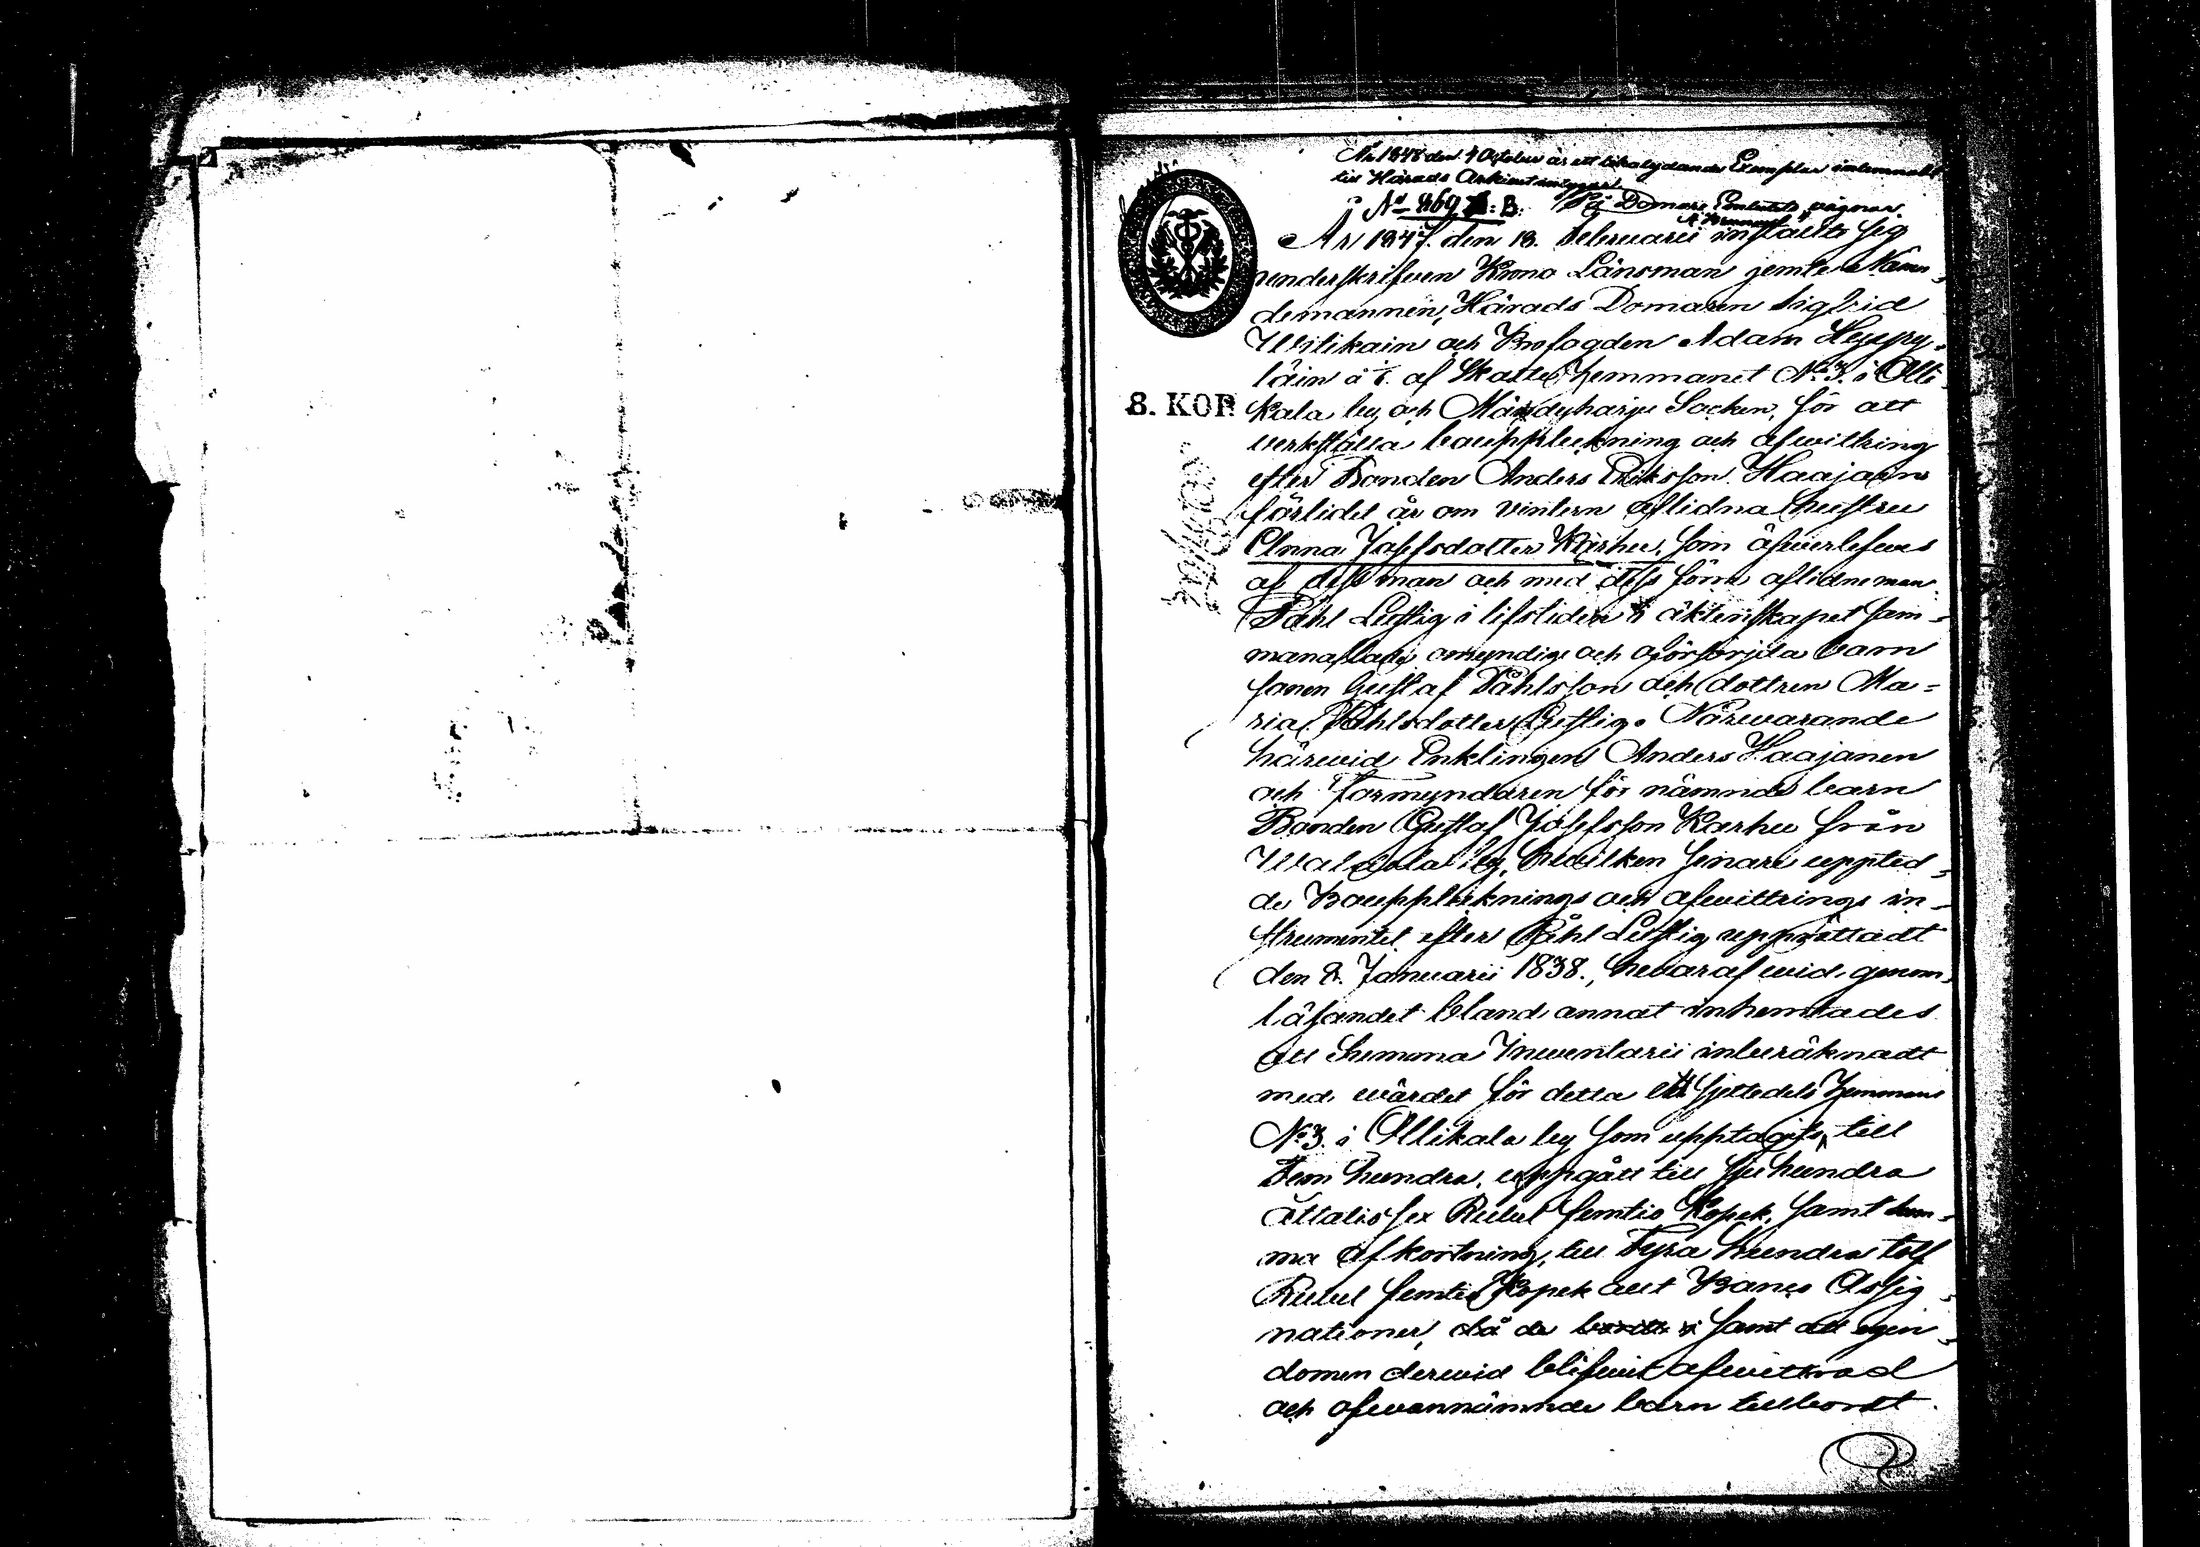 År 1848 den 4 October är ett lika lydande Exemplar inlemnadt
till Härads Arkivet intygar
På Domare Embetets vägnar.
№ 869 B:
8. KOP.
År 1847. den 13. Februarii instälte sig
underskrifven Krono Länsman jemte Näm-
demännen, Härads Domaren Sigfrid
Uvilikain och Brofogden Adam Heypy-
läin å ⅙ af Skatte hemmanet № 3. i Olli
kala by och Mändyharju Socken, för att
verkställa bouppteckning och afwittring
efter Bonden Anders Eriksson Haajains
förlidet år om vintern aflidna hustru
Anna Josefsdotter Karhu, som öfwerlefwes
af dess man och med dess förra aflidne man
Påhl Lustig i lifstiden i äktenskapet sam-
manaflade omyndige och oförsörjda barn
sonen Gustaf Påhlsson och dottren Ma-
ria Påhlsdotter Lustig. Närwarande
härwid Enklingen Anders Haajanen
och Förmyndaren för nämnde barn
Bonden Gustaf Josefsson Karhu från
by, hwilken senare uppted-
de Bouppteknings och afwittrings in-
strumentet efter Påhl Lustig upprättadt
den 8. Januarii 1838., hwaraf wid genom-
läsandet bland annat inhemtades
att Summa Inventarii inberäknadt
med wärdet för detta ett sjettedels Hemmans
№ 3. i Ollikala by som upptagits till
Fem hundra, uppgått till sju hundra
åttatio sex Rubel femtio Kopek, samt sum-
ma afkortning, till Fyra hundra tolf
Rubel femtio Kopek allt Banco Assig-
nationer, då de samt att egen-
domen derwid blifwit afwittrad
och ofwannämnde barn tillbordt